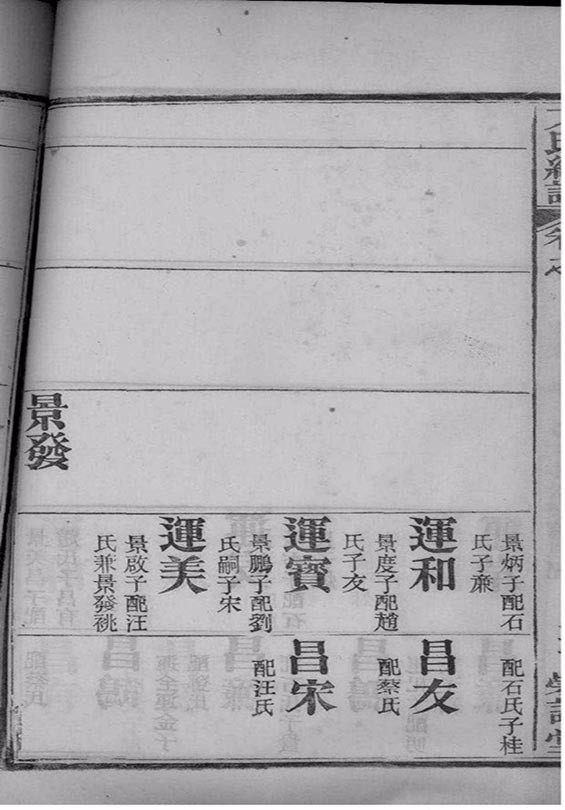 景發
景炳子配石
氏子亷
運和
景度子配趙
氏子友
運寶
景鵬子配劉
氏嗣子宋
運美
景啟子配汪
氏兼景發祧
配石氏子桂
昌友
配蔡氏
昌宋
配汪氏